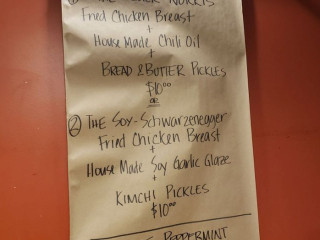 NORRIS
Fried Chicken Breast
+
House Made Chili Oil
+
BREAD & BUTTER PICKLES
$10⁰⁰
OR
② THE SOY-SCHWARZENEGGER
Fried Chicken Breast
+
House Made Soy Garlic Glaze
+
KIMCHI PICKLES
$10⁰⁰
PEPPERMINT